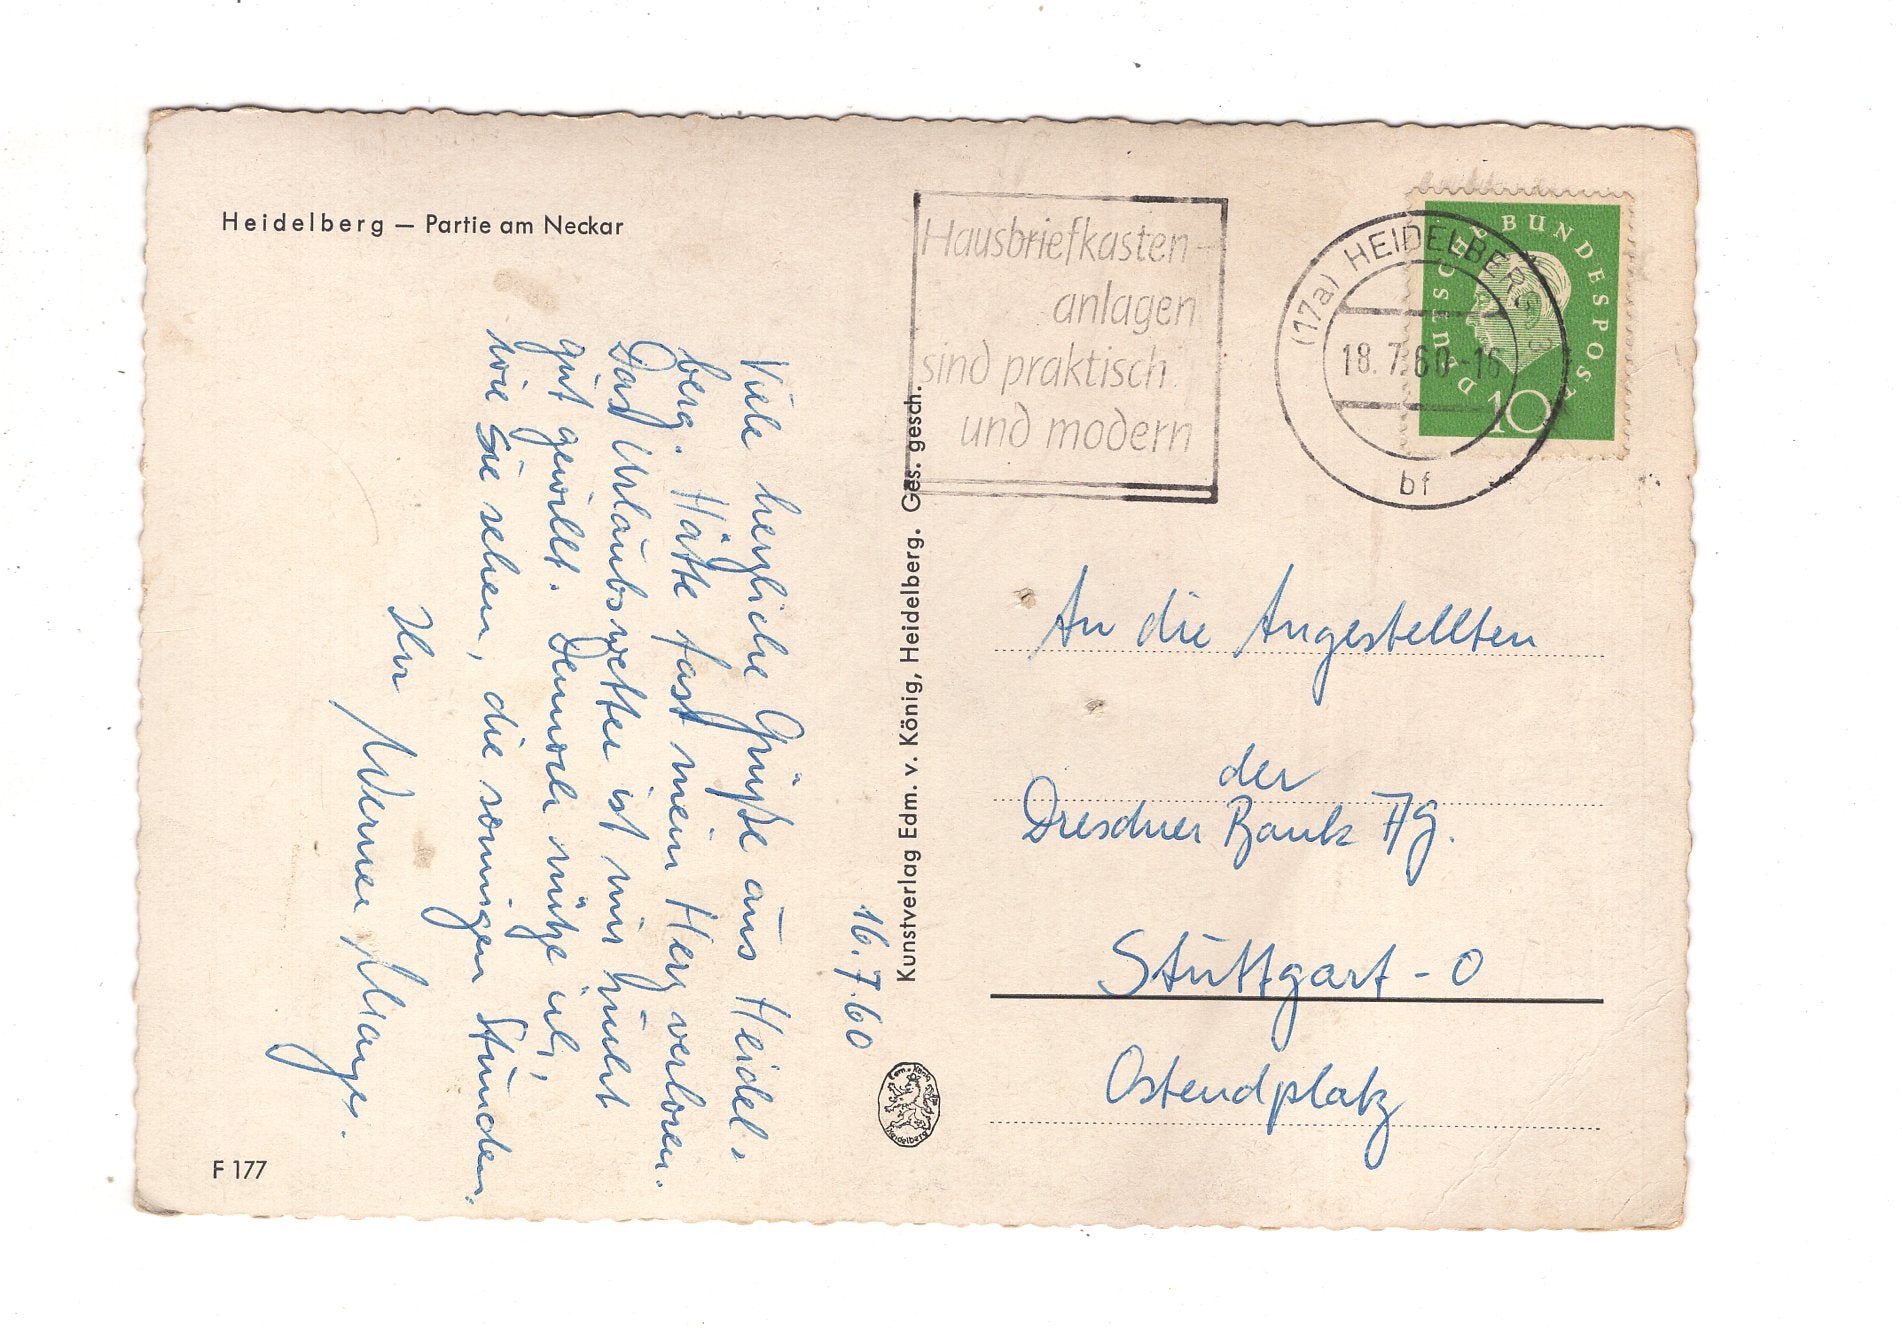 Heidelberg — Partie am Neckar
16.7.60
Viele herzliche Grüße aus Heidel-
berg. Hätte fast mein Herz verloren.
Das Urlaubswetter ist mir nicht
gut gewillt. Dennoch nütze ich,
wie Sie sehen, die sonnigen Stunden.
Ihr Werner
F 177
Kunstverlag Edm. v. König, Heidelberg. Ges. gesch.
Edm. König
Heidelberg
Hausbriefkasten-
anlagen
sind praktisch
und modern
(17a) HEIDELBERG 2
18.7.60-16
bf
DEUTSCHE BUNDESPOST
10
An die Angestellten
der
Dresdner Bank AG.
Stuttgart - O
Ostendplatz